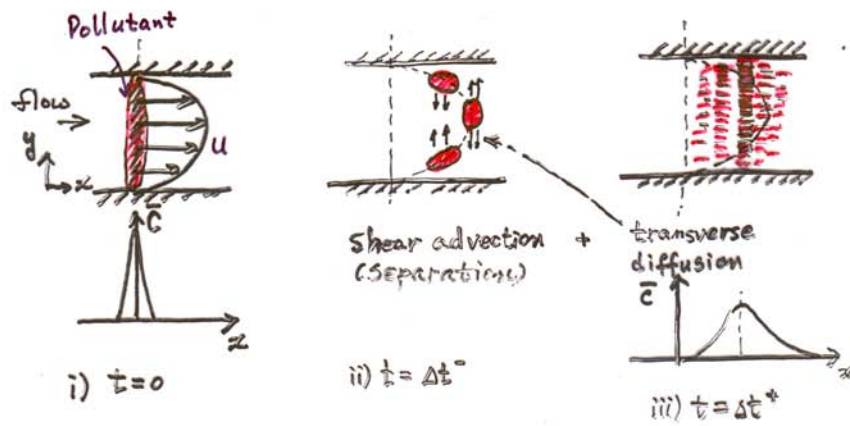 Pollutant
flow
y
x
u
C̅
x
i) t=0
shear advection
(separation)
ii) t=Δt⁻
+
transverse
diffusion
C̅
x
iii) t=Δt⁺